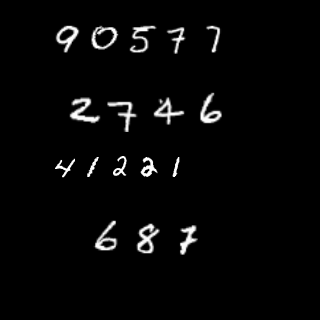 90577
2746
41221
687